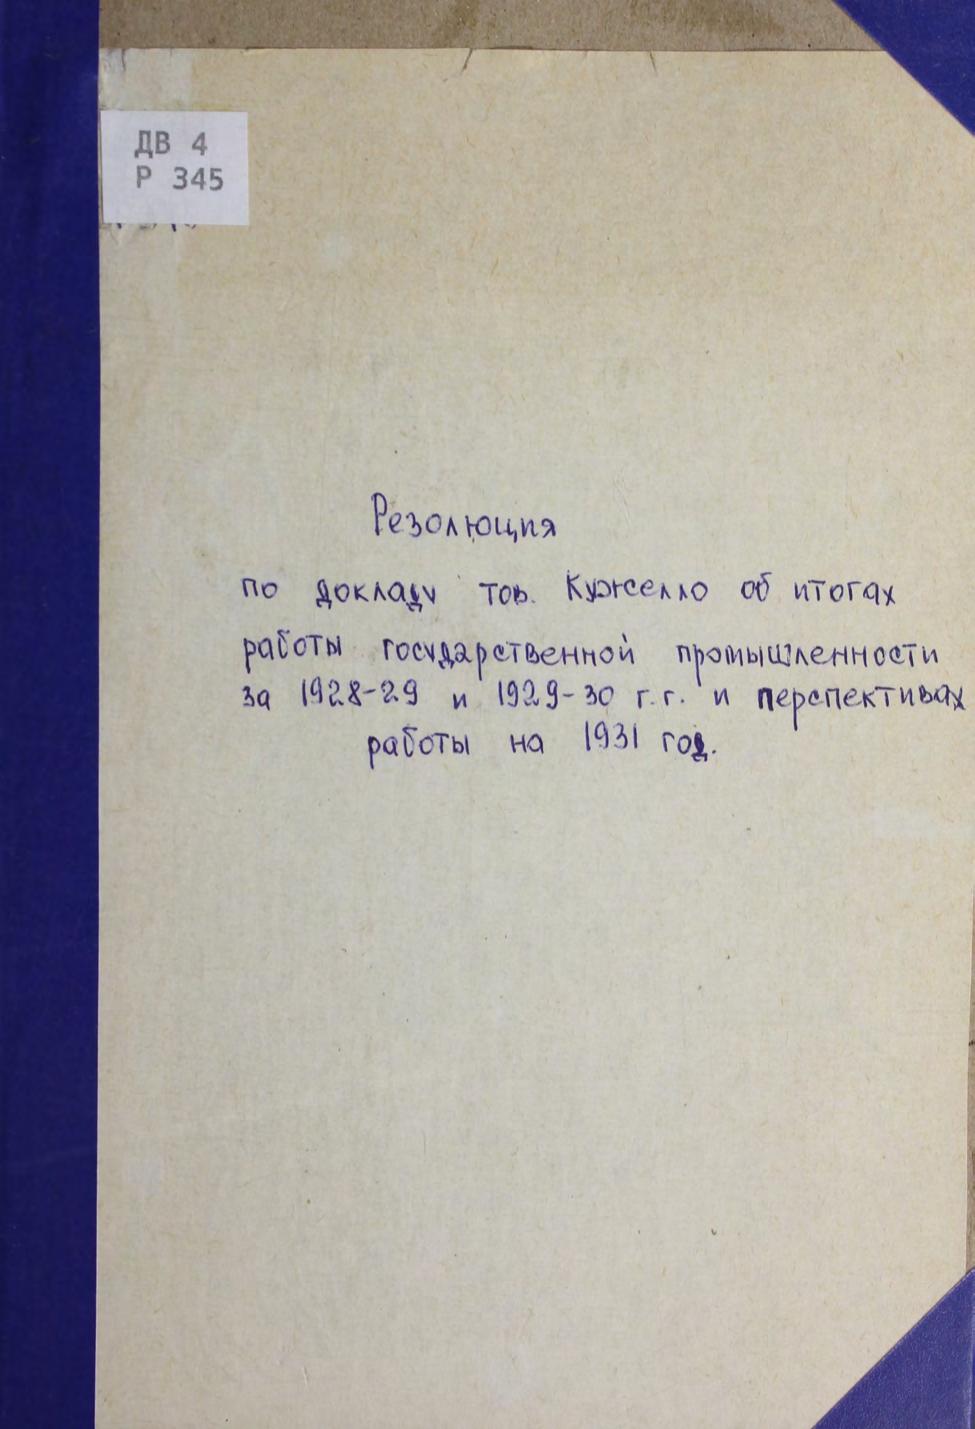 ДВ 4
Р 345
Резолюция
по докладу тов. Кужелло об итогах
работы государственной промышленности
за 1928-29 и 1929-30 г.г. и перспективах
работы на 1931 год.